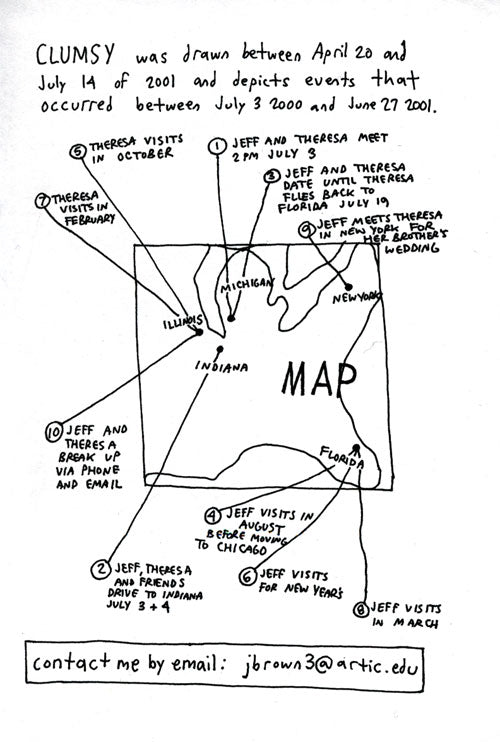 CLUMSY was drawn between April 20 and
July 14 of 2001 and depicts events that
occurred between July 3 2000 and June 27 2001.
⑤ THERESA VISITS
IN OCTOBER
① JEFF AND THERESA MEET
2PM JULY 3
③ JEFF AND THERESA
DATE UNTIL THERESA
FLIES BACK TO
FLORIDA JULY 19
⑦ THERESA
VISITS IN
FEBRUARY
⑨ JEFF MEETS THERESA
IN NEW YORK FOR
HER BROTHER'S
WEDDING
MICHIGAN
NEW YORK
ILLINOIS
INDIANA
MAP
FLORIDA
⑩ JEFF AND
THERESA
BREAK UP
VIA PHONE
AND EMAIL
④ JEFF VISITS IN
AUGUST
BEFORE MOVING
TO CHICAGO
② JEFF, THERESA
AND FRIENDS
DRIVE TO INDIANA
JULY 3 + 4
⑥ JEFF VISITS
FOR NEW YEARS
⑧ JEFF VISITS
IN MARCH
contact me by email: jbrown3@artic.edu